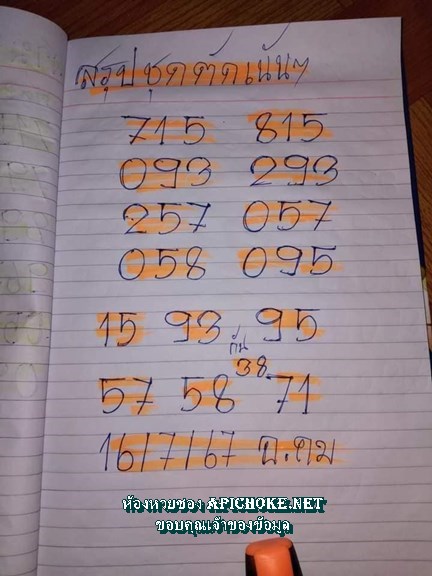 สรุปชุดตัดเน้นๆ
715 815
093 293
257 057
058 095
15 93 95
กัน 38
57 58 71
16/7/67 อ.คม
ห้องหวยซอง APICHOKE.NET
ขอบคุณเจ้าของข้อมูล